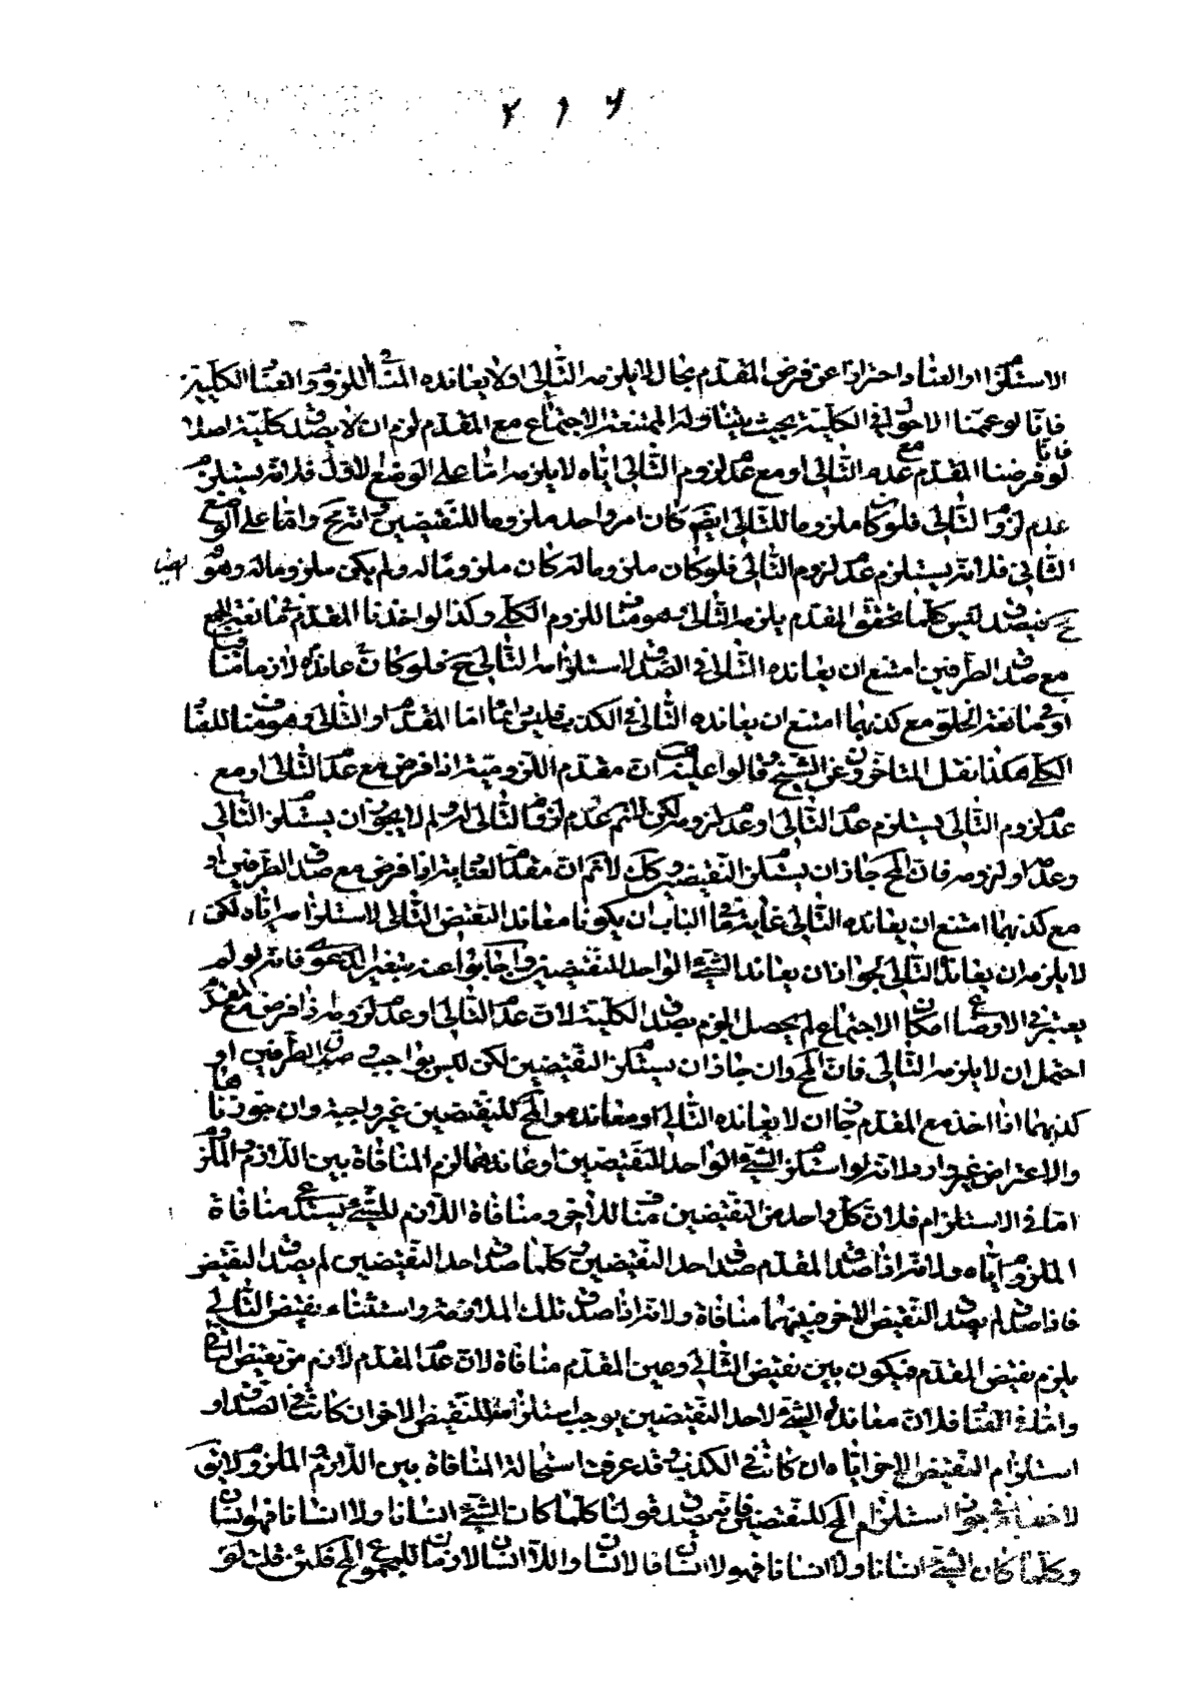 ٢ ٩ ٤
الاستلزام او العناد احترازا عن فرض المقدم بحال لا يلزمه التالى او لا يعانده المنافى للزوم والعناد الكلية
فانا لو عممنا الاحوال فى الكلية بحيث يتناول الممتنعة الاجتماع مع المقدم لزم ان لا يصدق كلية اصلا فانا
لو فرضنا المقدم مع عدم التالى او مع عدم لزوم التالى اياه لا يلزمه اما على الوضع الاول فلانه يستلزم
عدم لزوم التالى فلو كان ملزوما للتالى ايضم كان امر واحد ملزوما للنقيضين وانه مح واما على الوضع
الثانى فلانه يستلزم عدم لزوم التالى فلو كان ملزوما له كان ملزوما له ولم يكن ملزوما له وهو ايضا
مح فيصدق ليس كلما تحقق المقدم يلزمه التالى وهو مناف للزوم الكلى وكذا لو اخذنا المقدم فى مانعة الجمع
مع صدق الطرفين امتنع ان يعانده التالى فى الصدق لاستلزامه التالى ح فلو كان يعانده لازما منافيا
او فى مانعة الخلو مع كذبهما امتنع ان يعانده التالى فى الكذب فليس دائما اما المقدم او التالى وهو مناف للعناد
الكلى هكذا نقل المتاخرون عن الشيخ وقالوا عليه ان مقدم اللزومية اذا فرض مع عدم التالى او مع
عدم لزوم التالى يستلزم عدم التالى او عدم لزومه لكن لانم عدم لزوم التالى له ولم لا يجوز ان يستلزم التالى
وعدمه او لزومه فان المح جاز ان يستلزم النقيضين وكك لانم ان مقدم العنادية اذا فرض مع صدق الطرفين او
مع كذبهما امتنع ان يعانده التالى غاية ما فى الباب ان يكونا معاندا لنقيض التالى لاستلزامه اياه لكن
لا يلزم ان يعاند التالى لجواز ان يعاند الشىء الواحد للنقيضين واجابوا عنه بتغيير الدعوى فانه لو لم
يعتبر فى الاوضاع امكان الاجتماع لم يحصل الجزم بصدق الكلية لان عدم التالى او عدم لزومه اذا فرض مع المقدم
احتمل ان لا يلزمه التالى فان المح وان جاز ان يستلزم النقيضين لكن ليس بواجب وصدق الطرفين او
كذبهما اذا اخذ مع المقدم جاز ان لا يعانده التالى او معانده المح للنقيضين غير واجبة وان جوزناها
والاعتراض غير وارد لانه لو استلزم الشىء الواحد النقيضين او عاندهما لزم المنافاة بين اللازم والملزوم
اما فى الاستلزام فلان كل واحد من النقيضين مناف للاخر ومنافاة اللازم للشىء يستدعى منافاة
الملزوم اياه ولانه اذا صدق المقدم صدق احد النقيضين وكلما صدق احد النقيضين لم يصدق النقيض
فاذا صدق لم يصدق النقيض الاخر فبينهما منافاة ولانه اذا صدق تلك الملازمة واستثناء نقيض التالى
يلزم نقيض المقدم فيكون بين نقيض التالى وعين المقدم منافاة لان عدم المقدم لازم من نقيض التالى
واما فى العناد فلان معاندة الشىء لاحد النقيضين يوجب استلزامه للنقيض الاخر ان كانت فى الصدق او
استلزام النقيض الاخر اياه ان كانت فى الكذب وقد عرفت استحالة المنافاة بين اللازم والملزوم لا يق
لا خفاء فى جواز استلزام المح للنقيضين فانه يصدق قولنا كلما كان الشىء انسانا ولا انسانا فهو انسان
وكلما كان الشىء انسانا ولا انسانا فهو لا انسان فالانسان واللا انسان لازمان للمجموع المح فلئن قلت لو